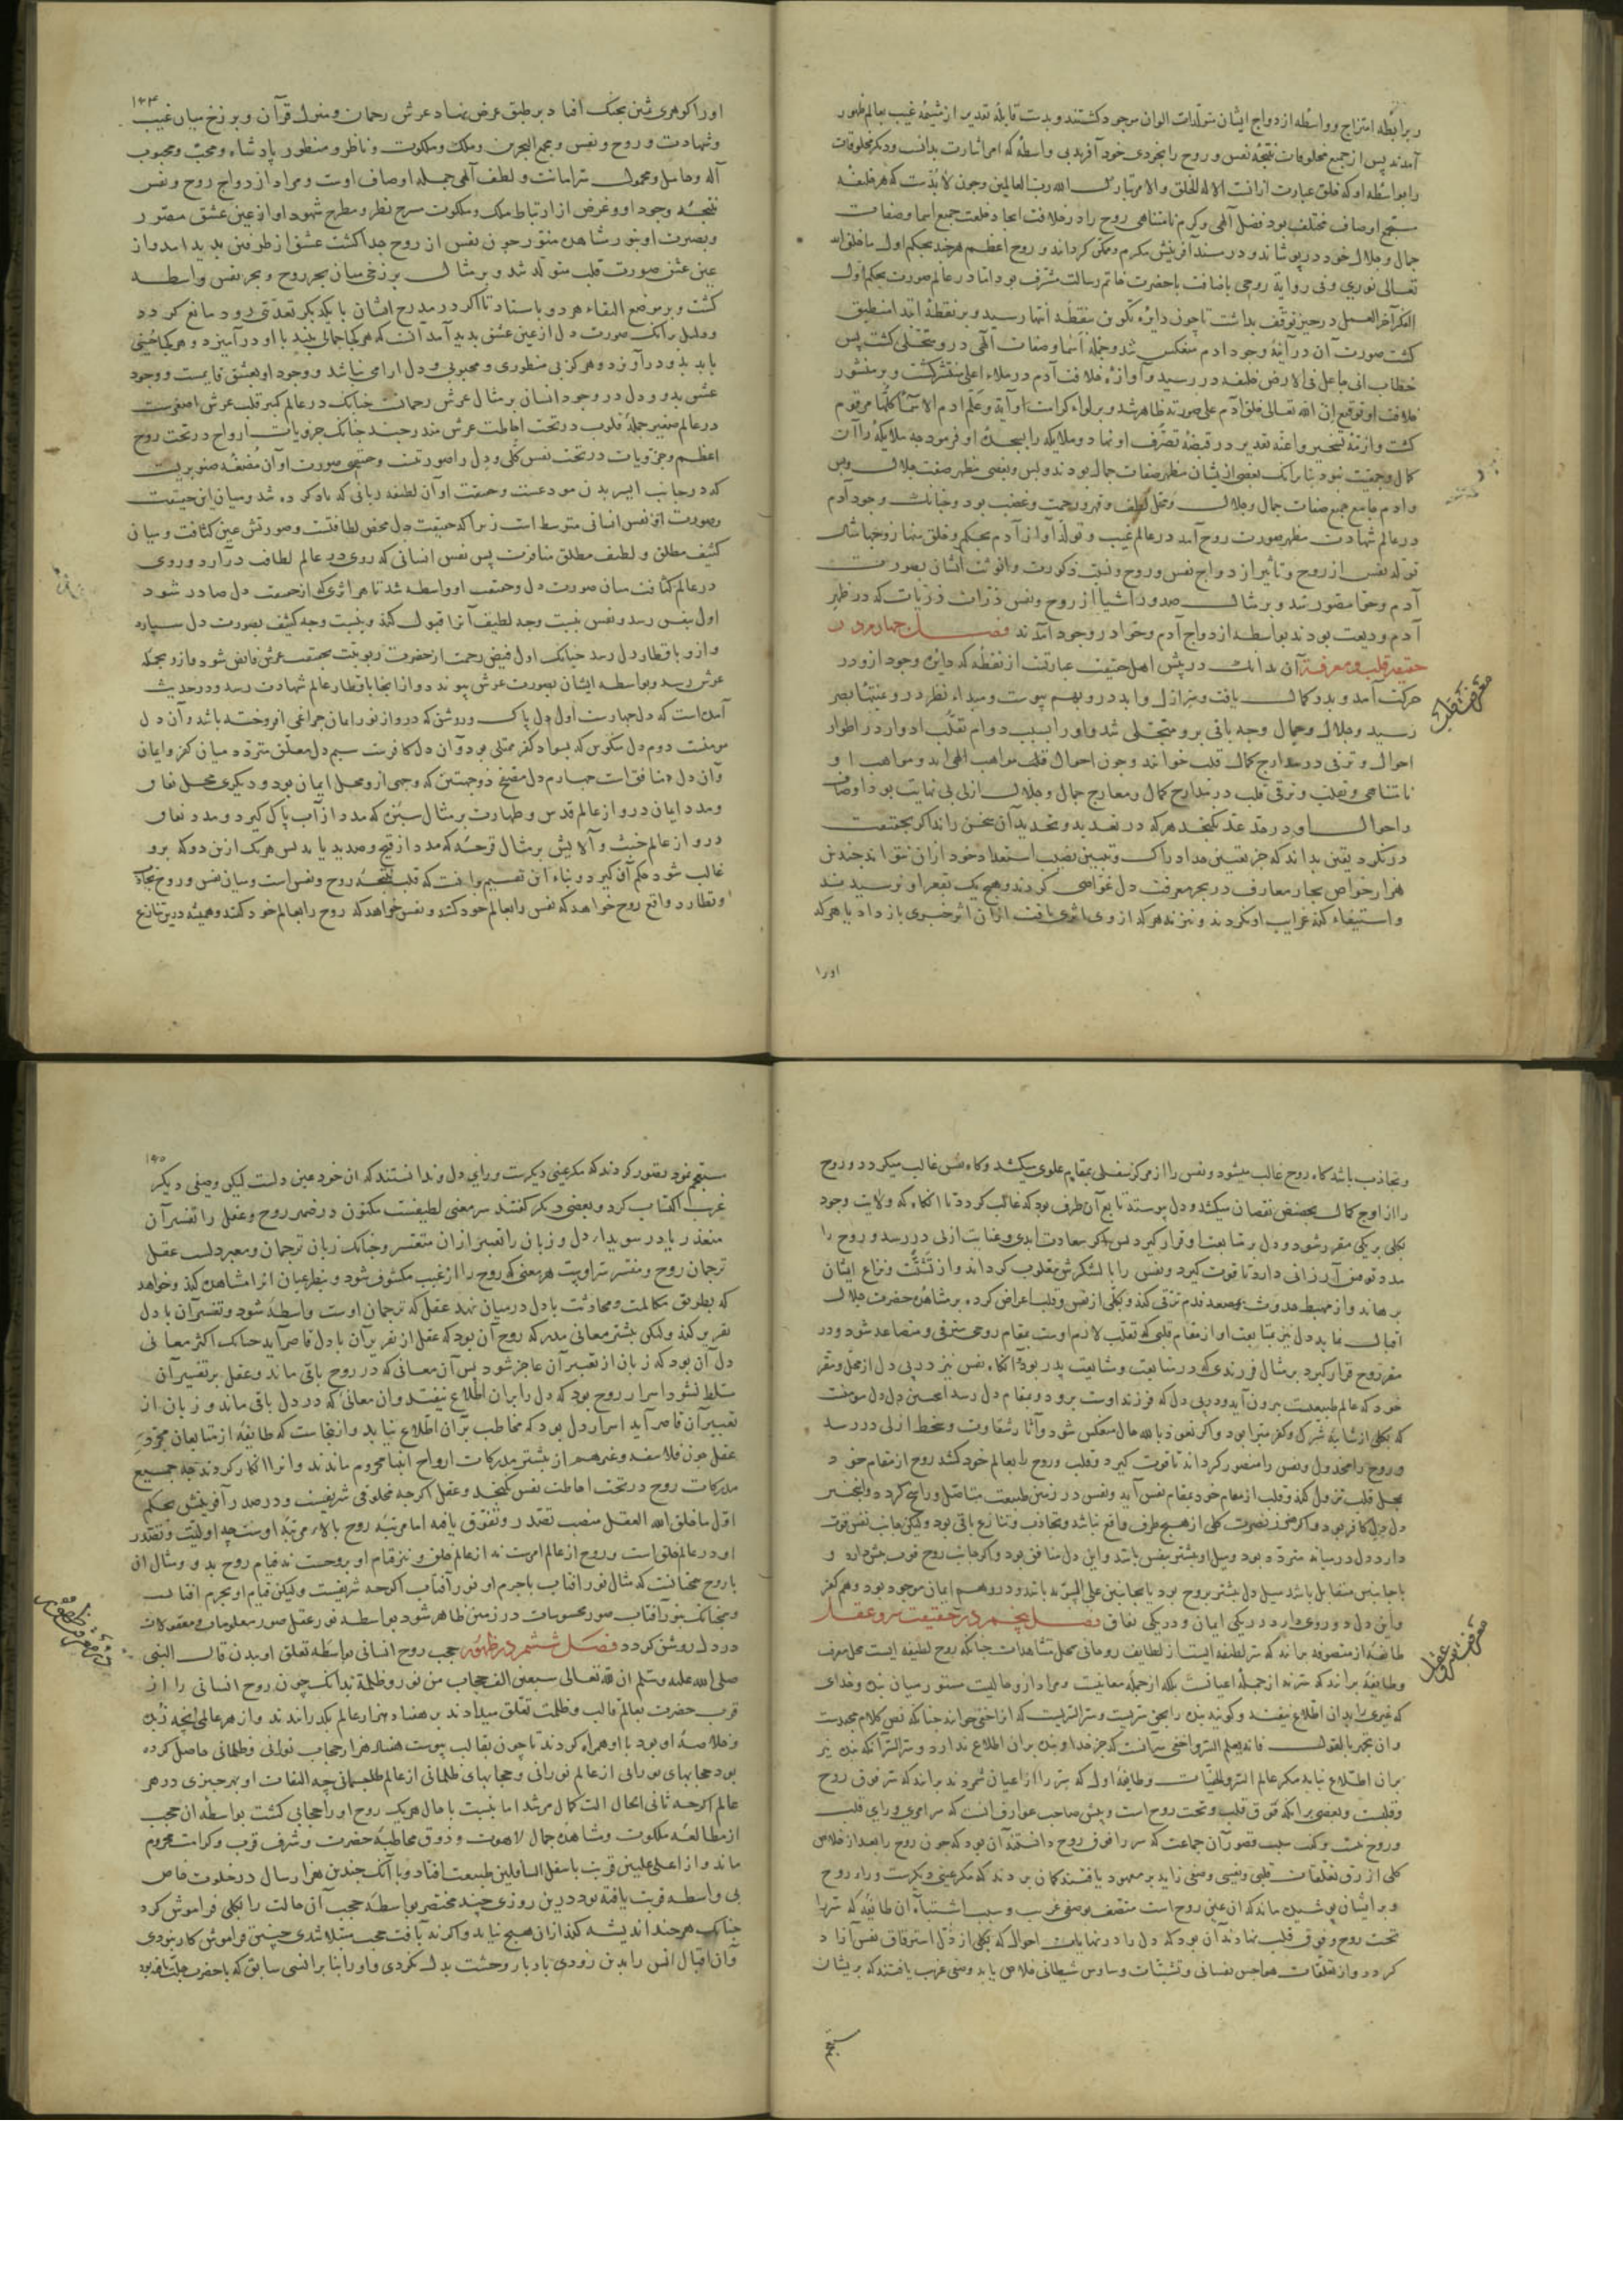 و برابطه امتزاج و واسطه ازدواج ایشان متولدات الوان موجود گشتند و بدست قابله تقدیر از مشیمه غیب بعالم ظهور
آمدند پس از جمیع مخلوقات نتیجه نفس و روح را بخودی خود آفرید بی واسطه که امر اشارت بدانست و دیگر مخلوقات
را بواسطه او که خلق عبارت ازانست الا له الخلق والامر تبارک الله رب العالمین و چون لابدست که هر خلیفه
مستجمع اوصاف مختلف بود فضل آلهی و کرم نامتناهی روح را در خلافت ایجاد خلعت جمیع اسما و صفات
جمال و جلال خود در پوشانید و در مسند آفرینش مکرم و ممکن گردانید و روح اعظم هر چند بحکم اول ما خلق الله
تعالی نوری و فی روایة روحی باضافت با حضرت خاتم رسالت مشرف بود اما در عالم صورت بحکم اول
الفکر آخر العمل در حیز توقف بداشت تا چون دایره تکوین بنقطه انتها رسید و بر نقطه ابتدا منطبق
گشت صورت آن در آینه وجود آدم منعکس شد و جمله اسما و صفات آلهی در و متجلی گشت پس
خطاب انی جاعل فی الارض خلیفه در رسید و آوازه خلافت آدم در ملاء اعلی منتشر گشت و بر منشور
خلافت او توقیع ان الله تعالی خلق آدم علی صورته ظاهر شد و بر لواء کرامت او آیه و علم ادم الاسماء کلها مرقوم
گشت و ازمه تسخیر و اعنه تقدیر در قبضه تصرف او نهاد و ملایکه را بسجده او فرمود چه ملایکه را آن
کمال و جمعیت نبود بنا برانک بعضی ازیشان مظهر صفات جمال بودند و بس و بعضی مظهر صفت جلال و بس
و آدم جامع جمیع صفات جمال و جلال و محل لطف و قهر و رحمت و غضب بود و چنانک وجود آدم
در عالم شهادت مظهر صورت روح آمد در عالم غیب و تولد حوا از آدم بحکم و خلق منها زوجها مثال
تولد نفس از روح و تاثیر ازدواج نفس و روح و نسبت ذکورت و انوثت ایشان بصورت
آدم و حوا مصور شد و بر مثال صدور اشیا از روح و نفس ذرات ذریات که در ظهر
آدم ودیعت بودند بواسطه ازدواج آدم و حوا در وجود آمدند فصل چهارم در
حقیقت قلب و معرفة آن بدانک در پیش اهل حقیقت عبارتست از نقطه که دایره وجود ازو در
معرفت قلب
حرکت آمد و بدو کمال یافت و سر ازل و ابد درو بهم پیوست و مبداء نظر درو بمنتهاء بصر
رسید و جلال و جمال وجه باقی برو متجلی شد و اورا بسبب دوام تقلب ادوار در اطوار
احوال و ترقی در مدارج کمال قلب خوانند و چون احوال قلب مواهب الهی اند و مواهب او
نامتناهی و تقلب و ترقی قلب در مدارج کمال و معارج جمال و جلال ازلی بی نهایت بود اوصاف
و احوال او در حد عد نگنجد هر که در تعدید و تحدید آن سخن راند اگر بحقیقت
درنگرد یقین بداند که جز تعیین حد ادراک و تبیین نصیب استعداد خود ازان نتواند چندین
هزار غواص بحار معارف در بحر معرفت دل غواصی کردند و هیچ یک بقعر او نرسیدند
و استیفاء کنه غرایب او نکردند و نیز نه هر که از وی اثری یافت ازان اثر خبری باز داد یا هر که
اورا
۱۴۴
اورا گوهری ثمین بچنگ افتاد بر طبق عرض نهاد عرش رحمان و منزل قرآن و برزخ میان غیب
و شهادت و روح و نفس و مجمع البحرین و ملک و ملکوت و ناظر و منظور پادشاه و محب و محبوب
آله و حامل و محمول سر امانت و لطف آلهی جمله اوصاف اوست و مراد از ازدواج روح و نفس
نتیجه وجود او و غرض از ارتباط ملک و ملکوت مسرح نظر و مطرح شهود او از عین عشق مصور
و بصرت او بنور مشاهده منور چون نفس از روح جدا گشت عشق از طرفین بدید امد و از
عین عشق صورت قلب متولد شد و بر مثال برزخی میان بحر روح و بحر نفس واسطه
گشت و بر موضع التقاء هر دو باستاد تا اگر در مدرج ایشان با یکدیگر تعدی رود مانع گردد
و دلیل برانک صورت دل از عین عشق بدید آمد آنست که هر کجا جمالی بیند با او در آمیزد و هر کجا حسنی
یابد بدو درآویزد و هرگز بی منظوری و محبوبی و دل ارامی نباشد و وجود او بعشق قایمست و وجود
عشق بدو و دل در وجود انسان بر مثال عرش رحمانست چنانک در عالم کبیر قلب عرش اصغرست
در عالم صغیر جمله قلوب در تحت احاطت عرش مندرجند چنانک جزویات ارواح در تحت روح
اعظم و جزویات در تحت نفس کلی و دل را صورتیست و حقیقتی صورت او آن مضغه صنوبریست
که در جانب ایسر بدن مودعست و حقیقت او آن لطیفه ربانی که یاد کرده شد و میان این حقیقت
و صورت او نفس انسانی متوسط است زیرا که حقیقت دل محض لطافتست و صورتش عین کثافت و میان
کثیف مطلق و لطیف مطلق منافرت پس نفس انسانی که روی در عالم لطافت درآرد و روی
در عالم کثافت میان صورت دل و حقیقت او واسطه شد تا هر اثری که از حقیقت دل صادر شود
اول بنفس رسد و نفس بنسبت وجه لطیف آنرا قبول کند و بنسبت وجه کثیف بصورت دل سپارد
و ازو باقطار دل رسد چنانک اول فیض رحمت از حضرت ربوبیت بحقیقت عرش فایض شود و ازو بحمله
عرش رسد و بواسطه ایشان بصورت عرش پیوندد و از انجا باقطار عالم شهادت رسد و در حدیث
آمده است که دل چهارست اول دل پاک و روشن که درو از نور ایمان چراغی افروخته باشد و آن دل
مومنست دوم دل منکوس که بسواد کفر ممتلی بود و آن دل کافرست سیم دل معلق متردد میان کفر و ایمان
و آن دل منافق است چهارم دل مصفح ذو جهتین که وجهی ازو محل ایمان بود و دیگری محل نفاق
و مدد ایمان درو از عالم قدس و طهارت بر مثال سبزه که مدد از آب پاک گیرد و مدد نفاق
درو از عالم خبث و آلایش بر مثال قرحه که مدد از قیح و صدید یابد پس هر یک ازین دو که برو
غالب شود حکم آن گیرد و بناء این تقسیم برانست که قلب نتیجه روح و نفس است و میان نفس و روح تجاذب
و تطارد واقع روح خواهد که نفس را بعالم خود کشد و نفس خواهد که روح را بعالم خود کشد و همیشه درین تنازع
و تجاذب باشد گاه روح غالب میشود و نفس را از مرکز سفلی بمقام علوی میکشد و گاه نفس غالب میگردد و روح
را از اوج کمال بحضیض نقصان میکشد و دل پیوسته تابع آن طرف بود که غالب گردد تا انگاه که ولایت وجود
بکلی بر یکی مقرر شود و دل بر متابعت او قرار گیرد پس اگر سعادت ابدی و عنایت ازلی در رسد و روح را
مدد توفیق ارزانی دارد تا قوت گیرد و نفس را با لشکرش مغلوب گرداند و از تشتت و نزاع ایشان
برهاند و از مهبط حدوث بمصعد قدم ترقی کند و بکلی از نفس و قلب اعراض کرده بر مشاهده حضرت جلال
اقبال نماید دل نیز بمتابعت او از مقام قلبی که تقلب لازم اوست بمقام روحی مترقی و متصاعد شود و در
مقر روح قرار گیرد بر مثال فرزندی که در متابعت و مشایعت پدر بود انگاه نفس نیز در پی دل از محل و مقر
خود که عالم طبیعت بیرون آید و در پی دل که فرزند اوست برود و بمقام دل رسد اعتین دل دل مومنست
که بکلی از شایبه شرک و کفر مبرا بود و اگر نعوذ بالله حال منعکس شود و آثار شقاوت و سخط ازلی در رسد
و روح را مخذول و نفس را منصور گرداند تا قوت گیرد و قلب و روح را بعالم خود کشد روح از مقام خود
بمحل قلب نزول کند و قلب از مقام خود بمقام نفس آید و نفس در زمین طبیعت متاصل و راسخ گردد و اینچنین
دل دل کافر بود و اگر هنوز نصرت کلی از هیچ طرف واقع نباشد و تجاذب و تنازع باقی بود و لیکن جانب نفس قوت
دارد دل درمیانه متردد بود و میل او بیشتر بنفس باشد و این دل منافق بود و اگر جانب روح قوت بیش دارد و
یا جانبین متقابل باشد میل دل بیشتر بروح بود یا بجانبین علی السویه باشد و درو هم ایمان موجود بود و هم کفر
و این دل دو روی دارد در یکی ایمان و در یکی نفاق فصل پنجم در حقیقت سر و عقل
معرفت سر و عقل
طایفه از متصوفه برانند که سر لطیفه ایست از لطایف روحانی محل مشاهدات چنانکه روح لطیفه ایست محل معرفت
و طایفه برانند که سر نه از جمله اعیانست بلکه از جمله معانیست و مراد ازو حالیست مستور میان بنده و خدای
که غیری را بران اطلاع نیفتد و گویند بنده را بحق سریست و سر السریست که انرا خفی خوانند چنانکه نص کلام مجیدست
و ان تجهر بالقول فانه یعلم السر و اخفی سر آنست که جز خدا و بنده بران اطلاع ندارد و سر السر آنکه بنده نیز
بران اطلاع نیابد مگر عالم السر و الخفیات و طایفه اول که سر را از اعیان شمردند برانند که سر فوق روح
و قلبست و بعضی برانکه فوق قلب و تحت روح است و پیش صاحب عوارف آنست که سر امری ورای قلب
و روح نیست و گفت سبب قصور آن جماعت که سر را فوق روح دانستند آن بود که چون روح را بعد از خلاص
کلی از رق تعلقات قلبی و نفسی وصفی زاید بر معهود یافتند گمان بردند که مگر عینی دیگرست ورای روح
و بر ایشان پوشیده ماند که ان عین روح است متصف بوصفی غریب و سبب اشتباه آن طایفه که سر را
تحت روح و فوق قلب نهادند آن بود که دل را در نهایات احوال که بکلی از ذل استرقاق نفس آزاد
گردد و از تعلقات هواجس نفسانی و تشبثات وساوس شیطانی خلاص یابد وصفی غریب یافتند که بریشان
مستعجم
۱۴۵
مستعجم نمود تصور کردند که مگر عینی دیگرست ورای دل و ندانستند که ان خود عین دلست لیکن وصفی دیگر
غریب اکتساب کرد و بعضی دیگر گفتند سر معنی لطیفست مکنون در ضمیر روح و عقل را تفسیر آن
متعذر یا در سویداء دل و زبان را تعبیر ازان متعسر و چنانک زبان ترجمان و معبر دلست عقل
ترجمان روح و مفسر سر اوست هر معنی که روح را از غیب مکشوف شود و بنظر عیان انرا مشاهده کند و خواهد
که بطریق مکالمت و محادثت با دل درمیان نهد عقل که ترجمان اوست واسطه شود و تفسیر آن با دل
تقریر کند و لیکن بیشتر معانی مدرکه روح آن بود که عقل از تقریر آن با دل قاصر آید چنانک اکثر معانی
دل آن بود که زبان از تعبیر آن عاجز شود پس آن معانی که در روح باقی ماند و عقل بر تفسیر آن
مسلط نشود اسرار روح بود که دل را بران اطلاع نیفتد و ان معانی که در دل باقی ماند و زبان از
تعبیر آن قاصر آید اسرار دل بود که مخاطب بران اطلاع نیابد و ازینجاست که طایفه از متابعان مجرد
عقل چون فلاسفه و غیرهم از بیشتر مدرکات ارواح انبیا محروم ماندند و انرا انکار کردند چه جمیع
مدرکات روح در تحت احاطت نفس نگنجد و عقل اگرچه مخلوقی شریفست و در صدر آفرینش بحکم
اول ما خلق الله العقل منصب تصدر و تفوق یافته اما مرتبه روح بالاء مرتبه اوست چه اولیت و تصدر
او در عالم خلق است و روح از عالم امرست نه از عالم خلق و نیز قیام او بروحست نه قیام روح بدو و مثال ان
با روح همچنانست که مثال نور افتاب با جرم او نور آفتاب اگرچه شریفست و لیکن قیام او بجرم افتاب
و چنانک بنور آفتاب صور محسوسات در زمین ظاهر شود بواسطه نور عقل صور معلومات و معقولات
در دل روشن گردد فصل ششم در ظهور حجب روح انسانی بواسطه تعلق او ببدن قال النبی
صلی الله علیه و سلم ان لله تعالی سبعین الف حجاب من نور و ظلمة بدانک چون روح انسانی را از
قرب حضرت بعالم قالب و ظلمت تعلق میدادند بر هفتاد هزار عالم بگذرانیدند و از هر عالمی انچه زبده
و خلاصه او بود با او همراه کردند تا چون بقالب پیوست هفتاد هزار حجاب نورانی و ظلمانی حاصل کرده
بود حجابهای نورانی از عالم نورانی و حجابهای ظلمانی از عالم ظلمانی چه التفات او بهر چیزی در هر
عالم اگرچه ثانی الحال آلت کمال مرشد اما بنسبت با حال هر یک روح او را حجابی گشت بواسطه ان حجب
از مطالعه ملکوت و مشاهده جمال لاهوت و ذوق مخاطبه حضرت و شرف قرب و کرامت محروم
ماند و از اعلی علیین قربت باسفل السافلین طبیعت افتاد و با آنک چندین هزار سال در خلوت خاص
بی واسطه قربت یافته بود درین روزی چند مختصر بواسطه حجب آن حالت را بکلی فراموش کرد
چنانک هر چند اندیشه کند ازان هیچ نیابد و اگر نه بآفت حجب مبتلا شدی چنین فراموش کار نبودی
و آن اقبال انس را بدین زودی بادبار وحشت بدل نکردی و اورا بنابر انسی سابق که با حضرت جلت یافته بود